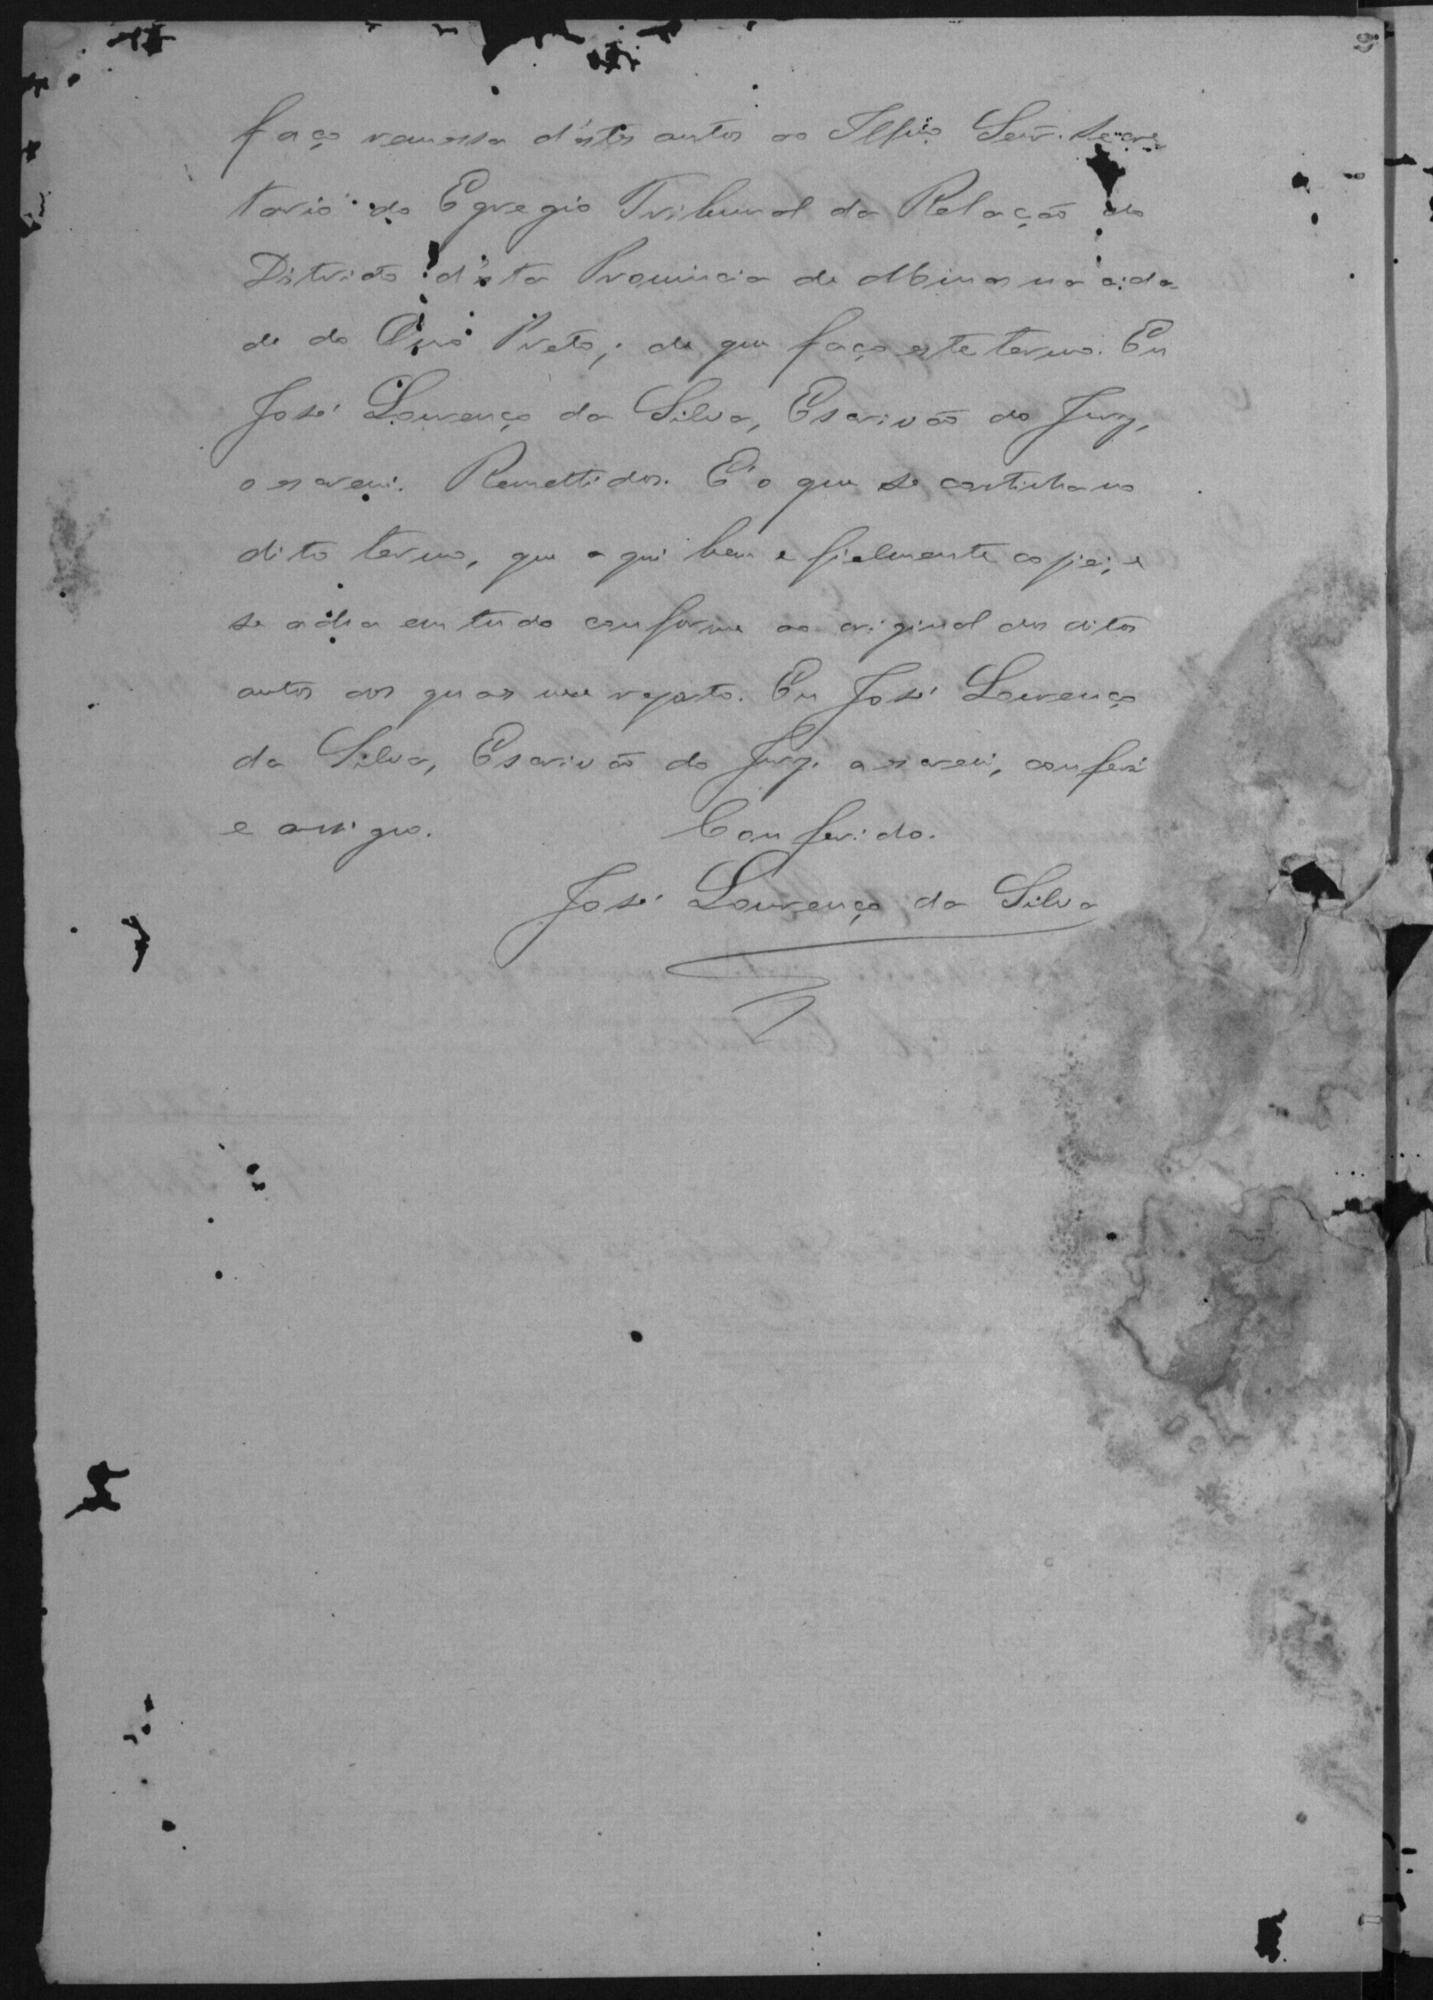 faço remessa d'estes autos ao Illmo Senr. Secre
tario do Egregio Tribunal da Relação do
Districto d'esta Provincia de Minas na cida
de do Ouro Preto; de que faço este termo. Eu
José Lourenço da Silva, Escrivão do Jury,
o escrevi. Remettidos. E' o que se continha no
dito termo, que aqui bem e fielmente copiei, e
se acha em tudo conforme ao original dos ditos
autos aos quaes me reporto. Eu José Lourenço
da Silva, Escrivão do Jury, o escrevi, conferi
e assigno. Conferido.
José Lourenço da Silva